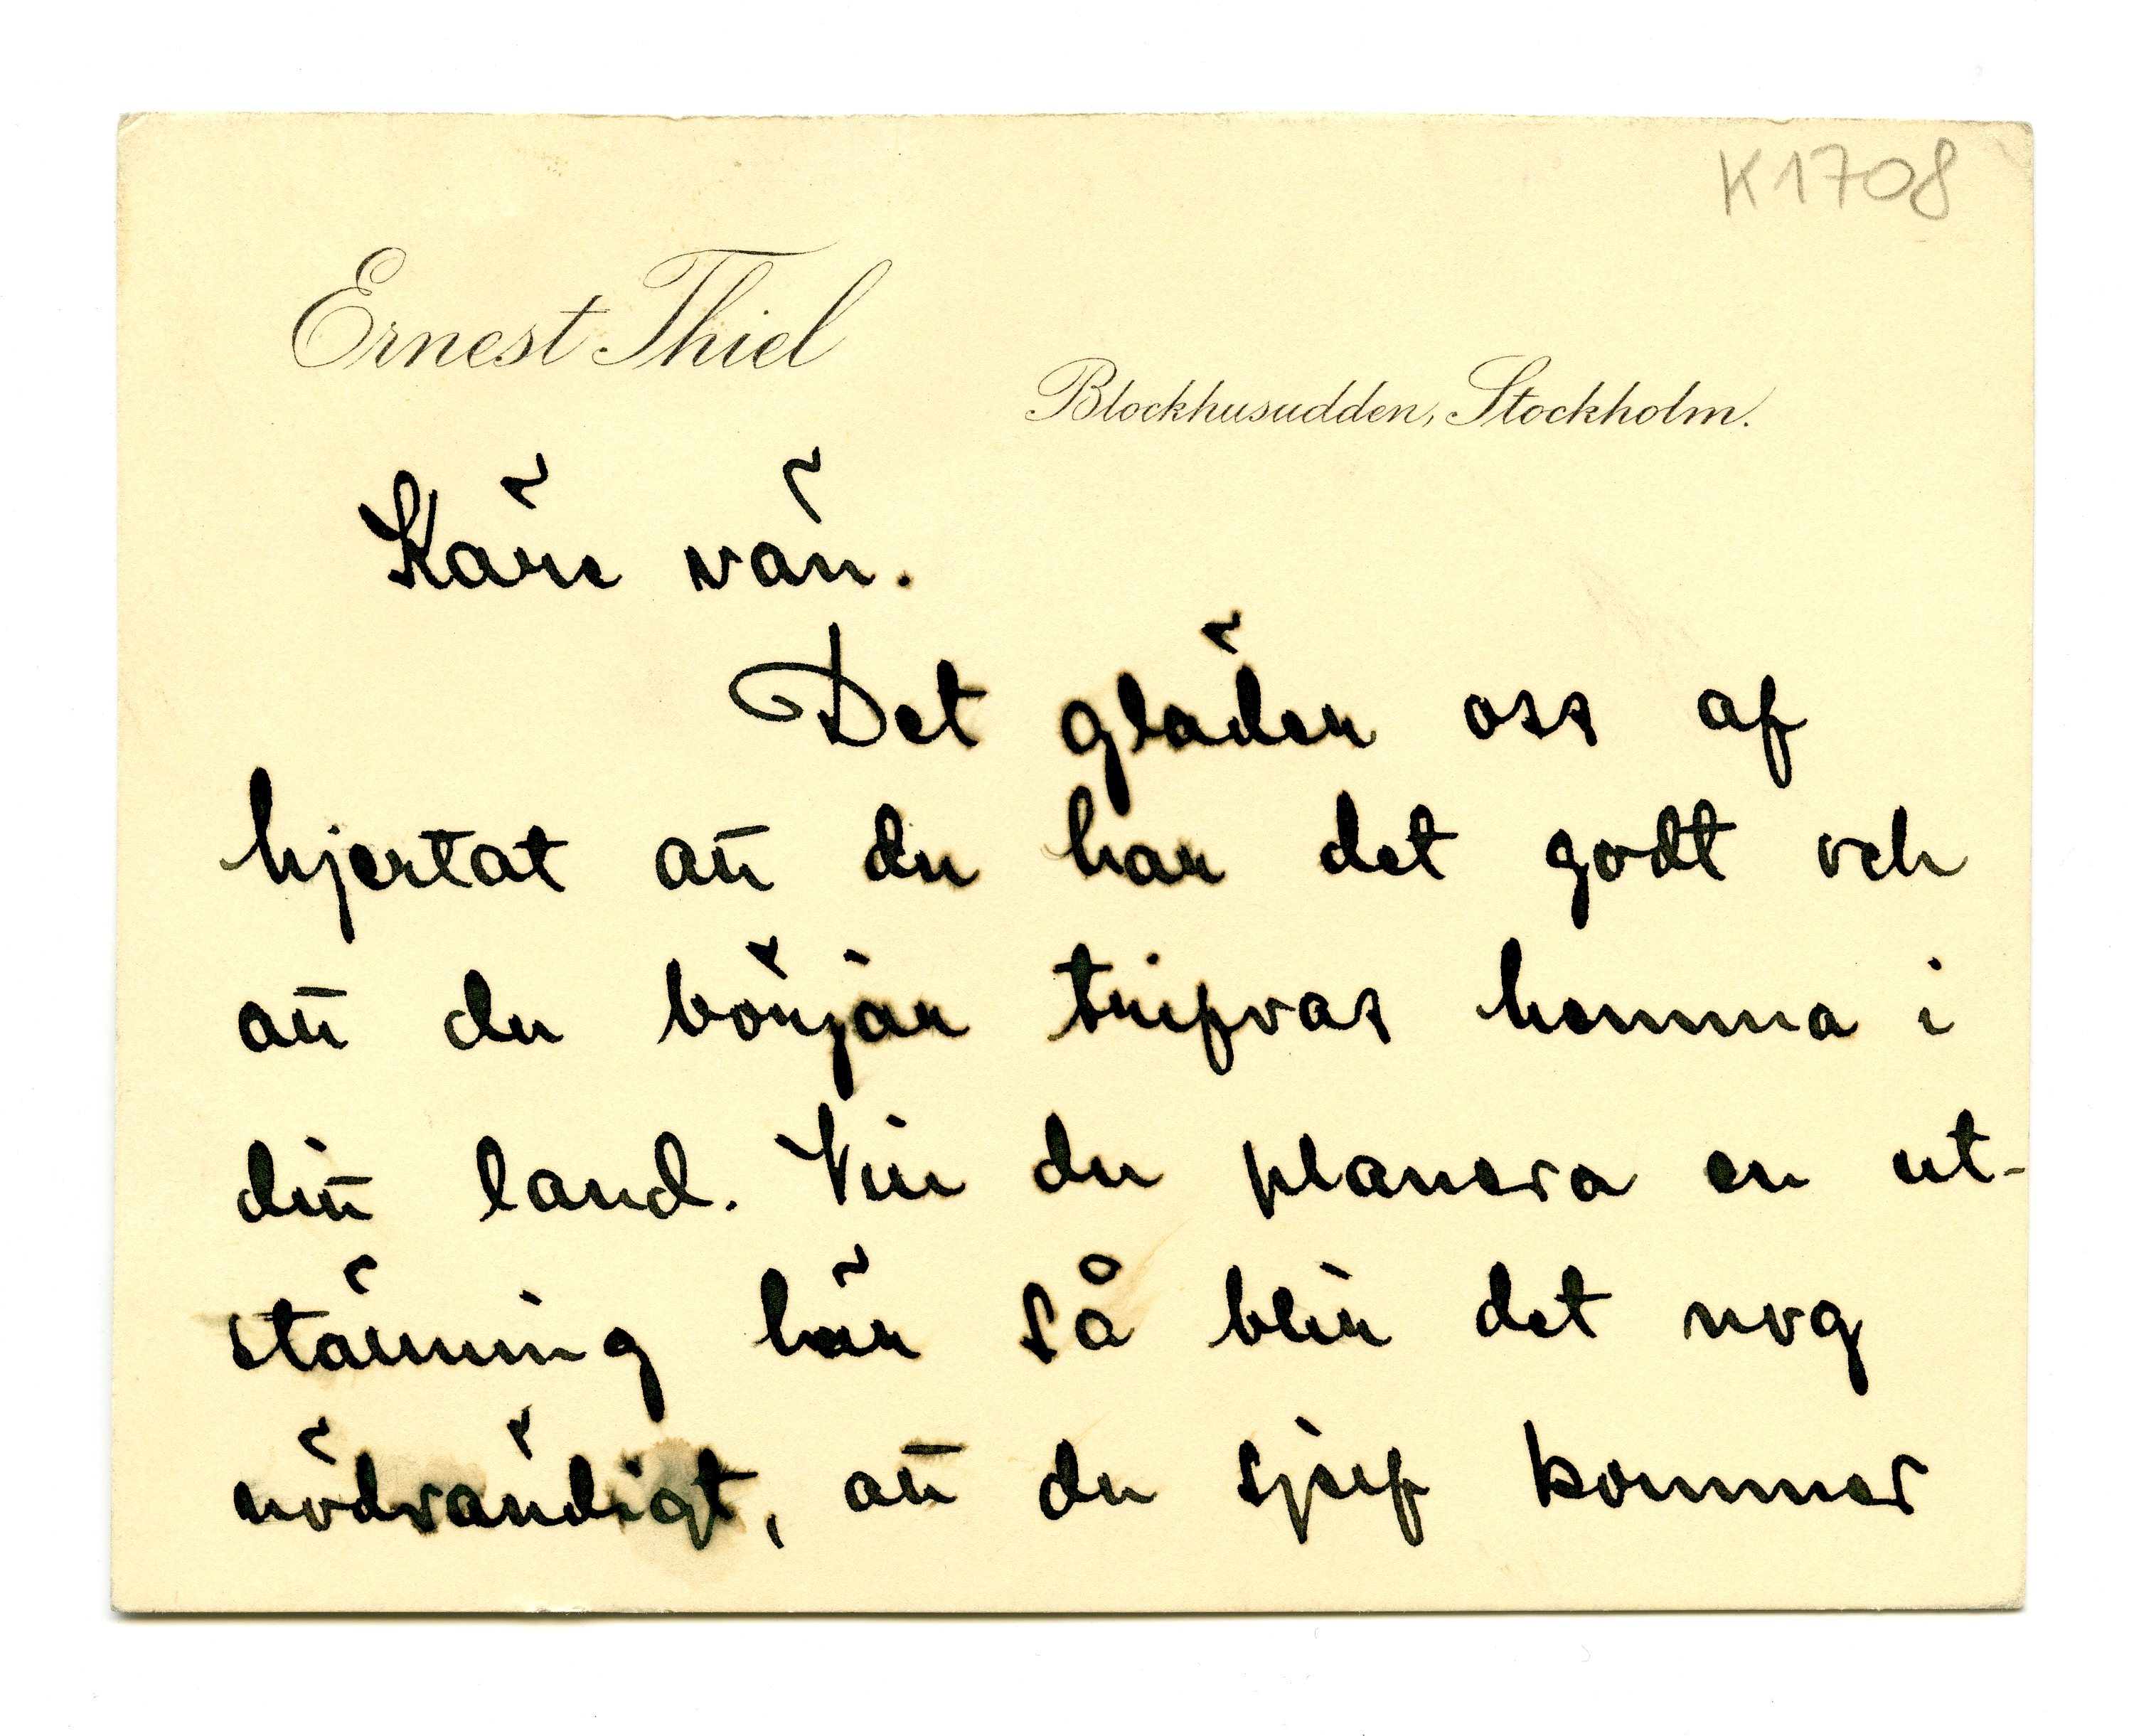 K 1708
Ernest Thiel
Blockhusudden, Stockholm.
Käre vän.
Det gläder oss af
hjertat att du har det godt och
att du börjar trifvas hemma i
ditt land. Vill du planera en ut-
ställning här så blir det nog
nödvändigt, att du sjelf kommer